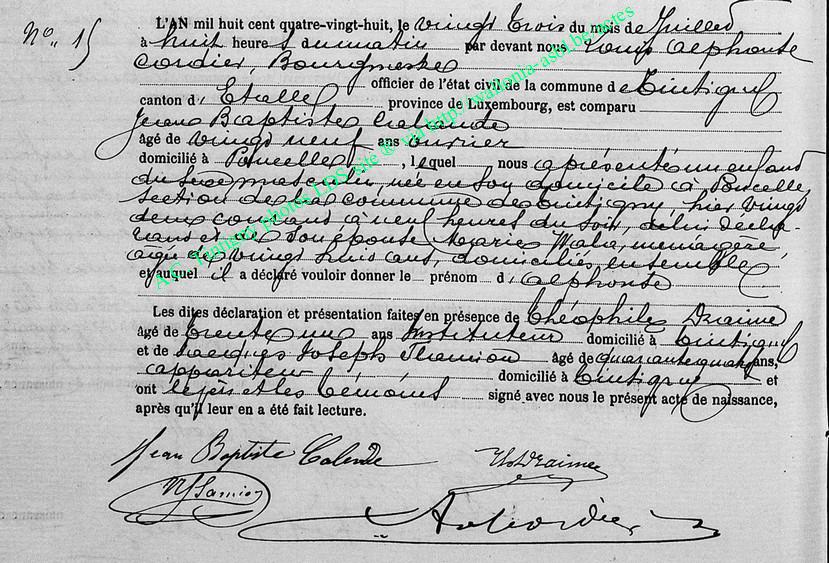 N° 15
L'AN mil huit cent quatre-vingt-huit, le vingt trois du mois de Juillet
à huit heures du matin par devant nous Louis Alphonse
Cordier, Bourgmestre
officier de l'état civil de la commune de Tintigny
canton d'Etalle province de Luxembourg, est comparu
Jean Baptiste Calande
âgé de vingt neuf ans ouvrier
domicilié à Poncelle, lequel nous a présenté un enfant
du sexe masculin, née en son domicile à Poncelle,
section de la commune de Tintigny, hier vingt
deux courant à neuf heures du soir, de lui décla-
rant et de son épouse Marie Watia, ménagère
âgée de vingt ans, domiciliés ensemble
et auquel il a déclaré vouloir donner le prénom d'Alphonse
Les dites déclaration et présentation faites en présence de Théophile Dzaime
âgé de trente un ans Instituteur domicilié à Tintigny
et de Jacques Joseph âgé de quarante quatre ans,
appariteur domicilié à Tintigny et
ont le père et les témoins signé avec nous le présent acte de naissance,
après qu'il leur en a été fait lecture.
Jean Baptiste Calande
A Cordier
A.G. Tintigny photos LDS site @ via http://wallonia-asbl.be/notes